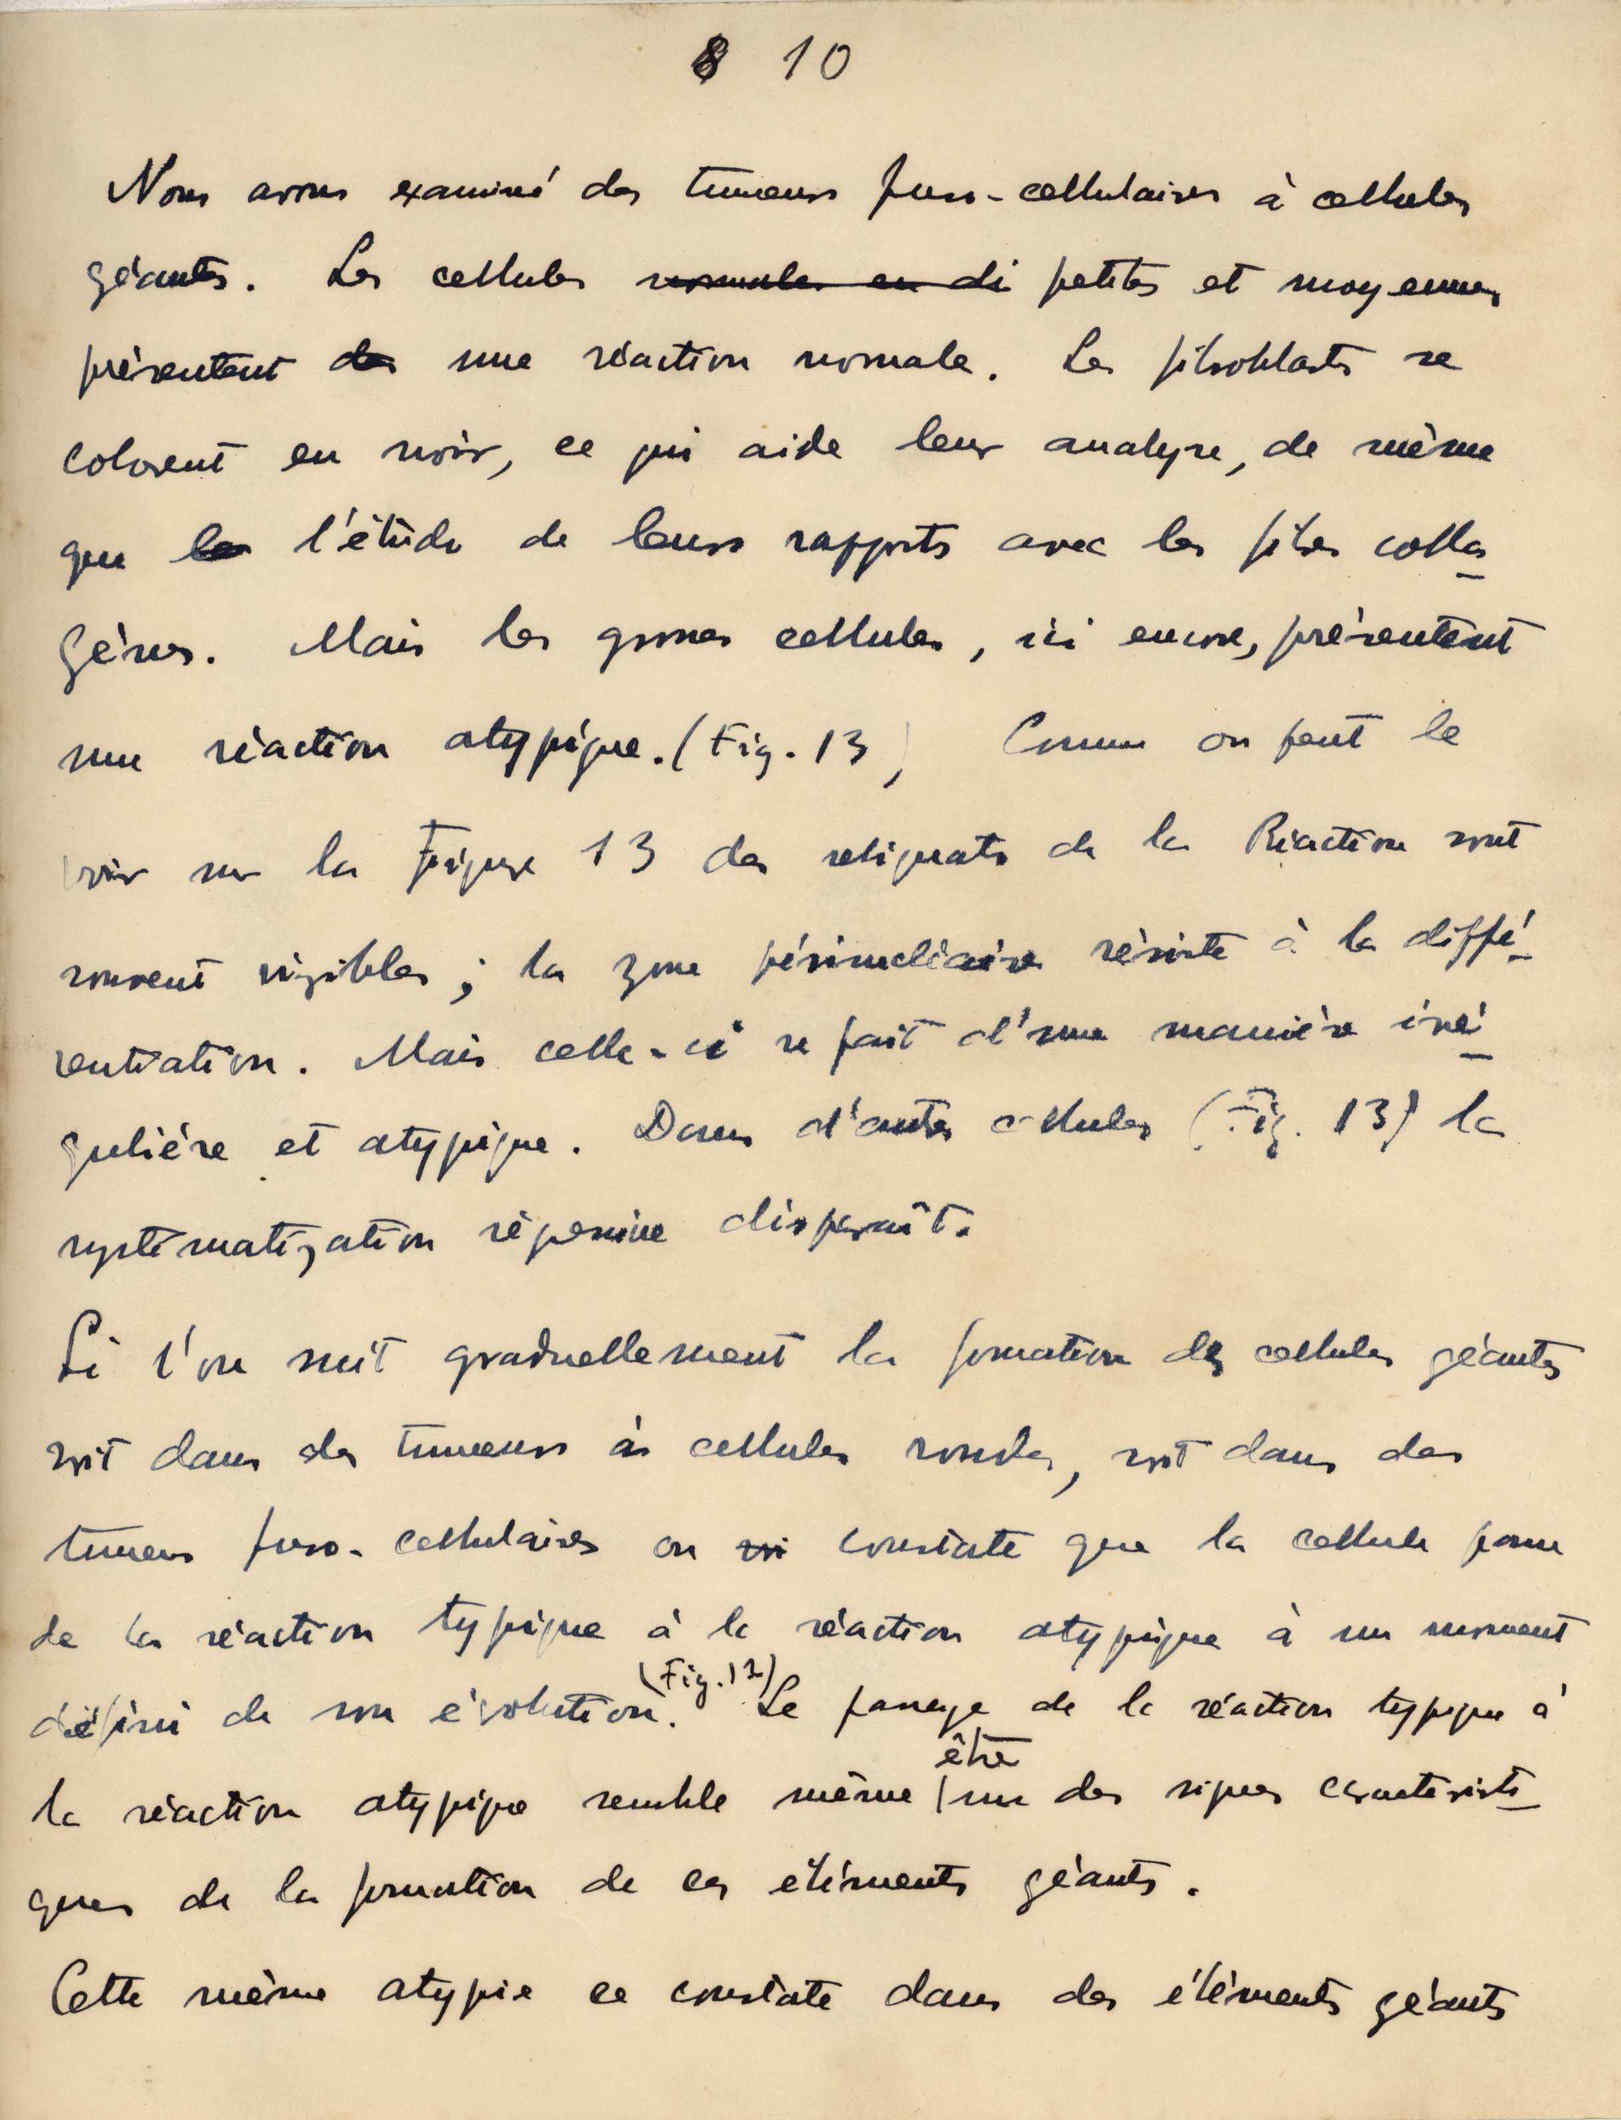 8 10
Nous avons examiné des tumeurs fuso-cellulaires à cellules
géantes. Les cellules normales en di petites et moyennes
présentent des une réaction normale. Les fibroblasts se
colorent en noir, ce qui aide leur analyse, de même
que les l'étude de leurs rapports avec les fibres colla-
gènes. Mais les grosses cellules, ici encore, présentent
une réaction atypique. (Fig. 13) Comme on peut le
voir sur la Figure 13 des reliquats de la Réaction sont
souvent visibles ; la zone périnucléaire résiste à la diffé-
rentiation. Mais celle-ci se fait d'une manière irré-
gulière et atypique. Dans d'autes cellules (Fig. 13) la
systématization régressive disparaît.
Si l'on suit graduellement la formation des cellules géantes
soit dans des tumeurs à cellules rondes, soit dans des
tumeurs fuso-cellulaires on voi constate que la cellule passe
de la réaction typique à la réaction atypique à un moment
défini de son évolution. (Fig. 12) Le passage de la réaction typique à
la réaction atypique semble même être un des signes caractéristi-
ques de la formation de ces éléments géants.
Cette même atypie se constate dans des éléments géants